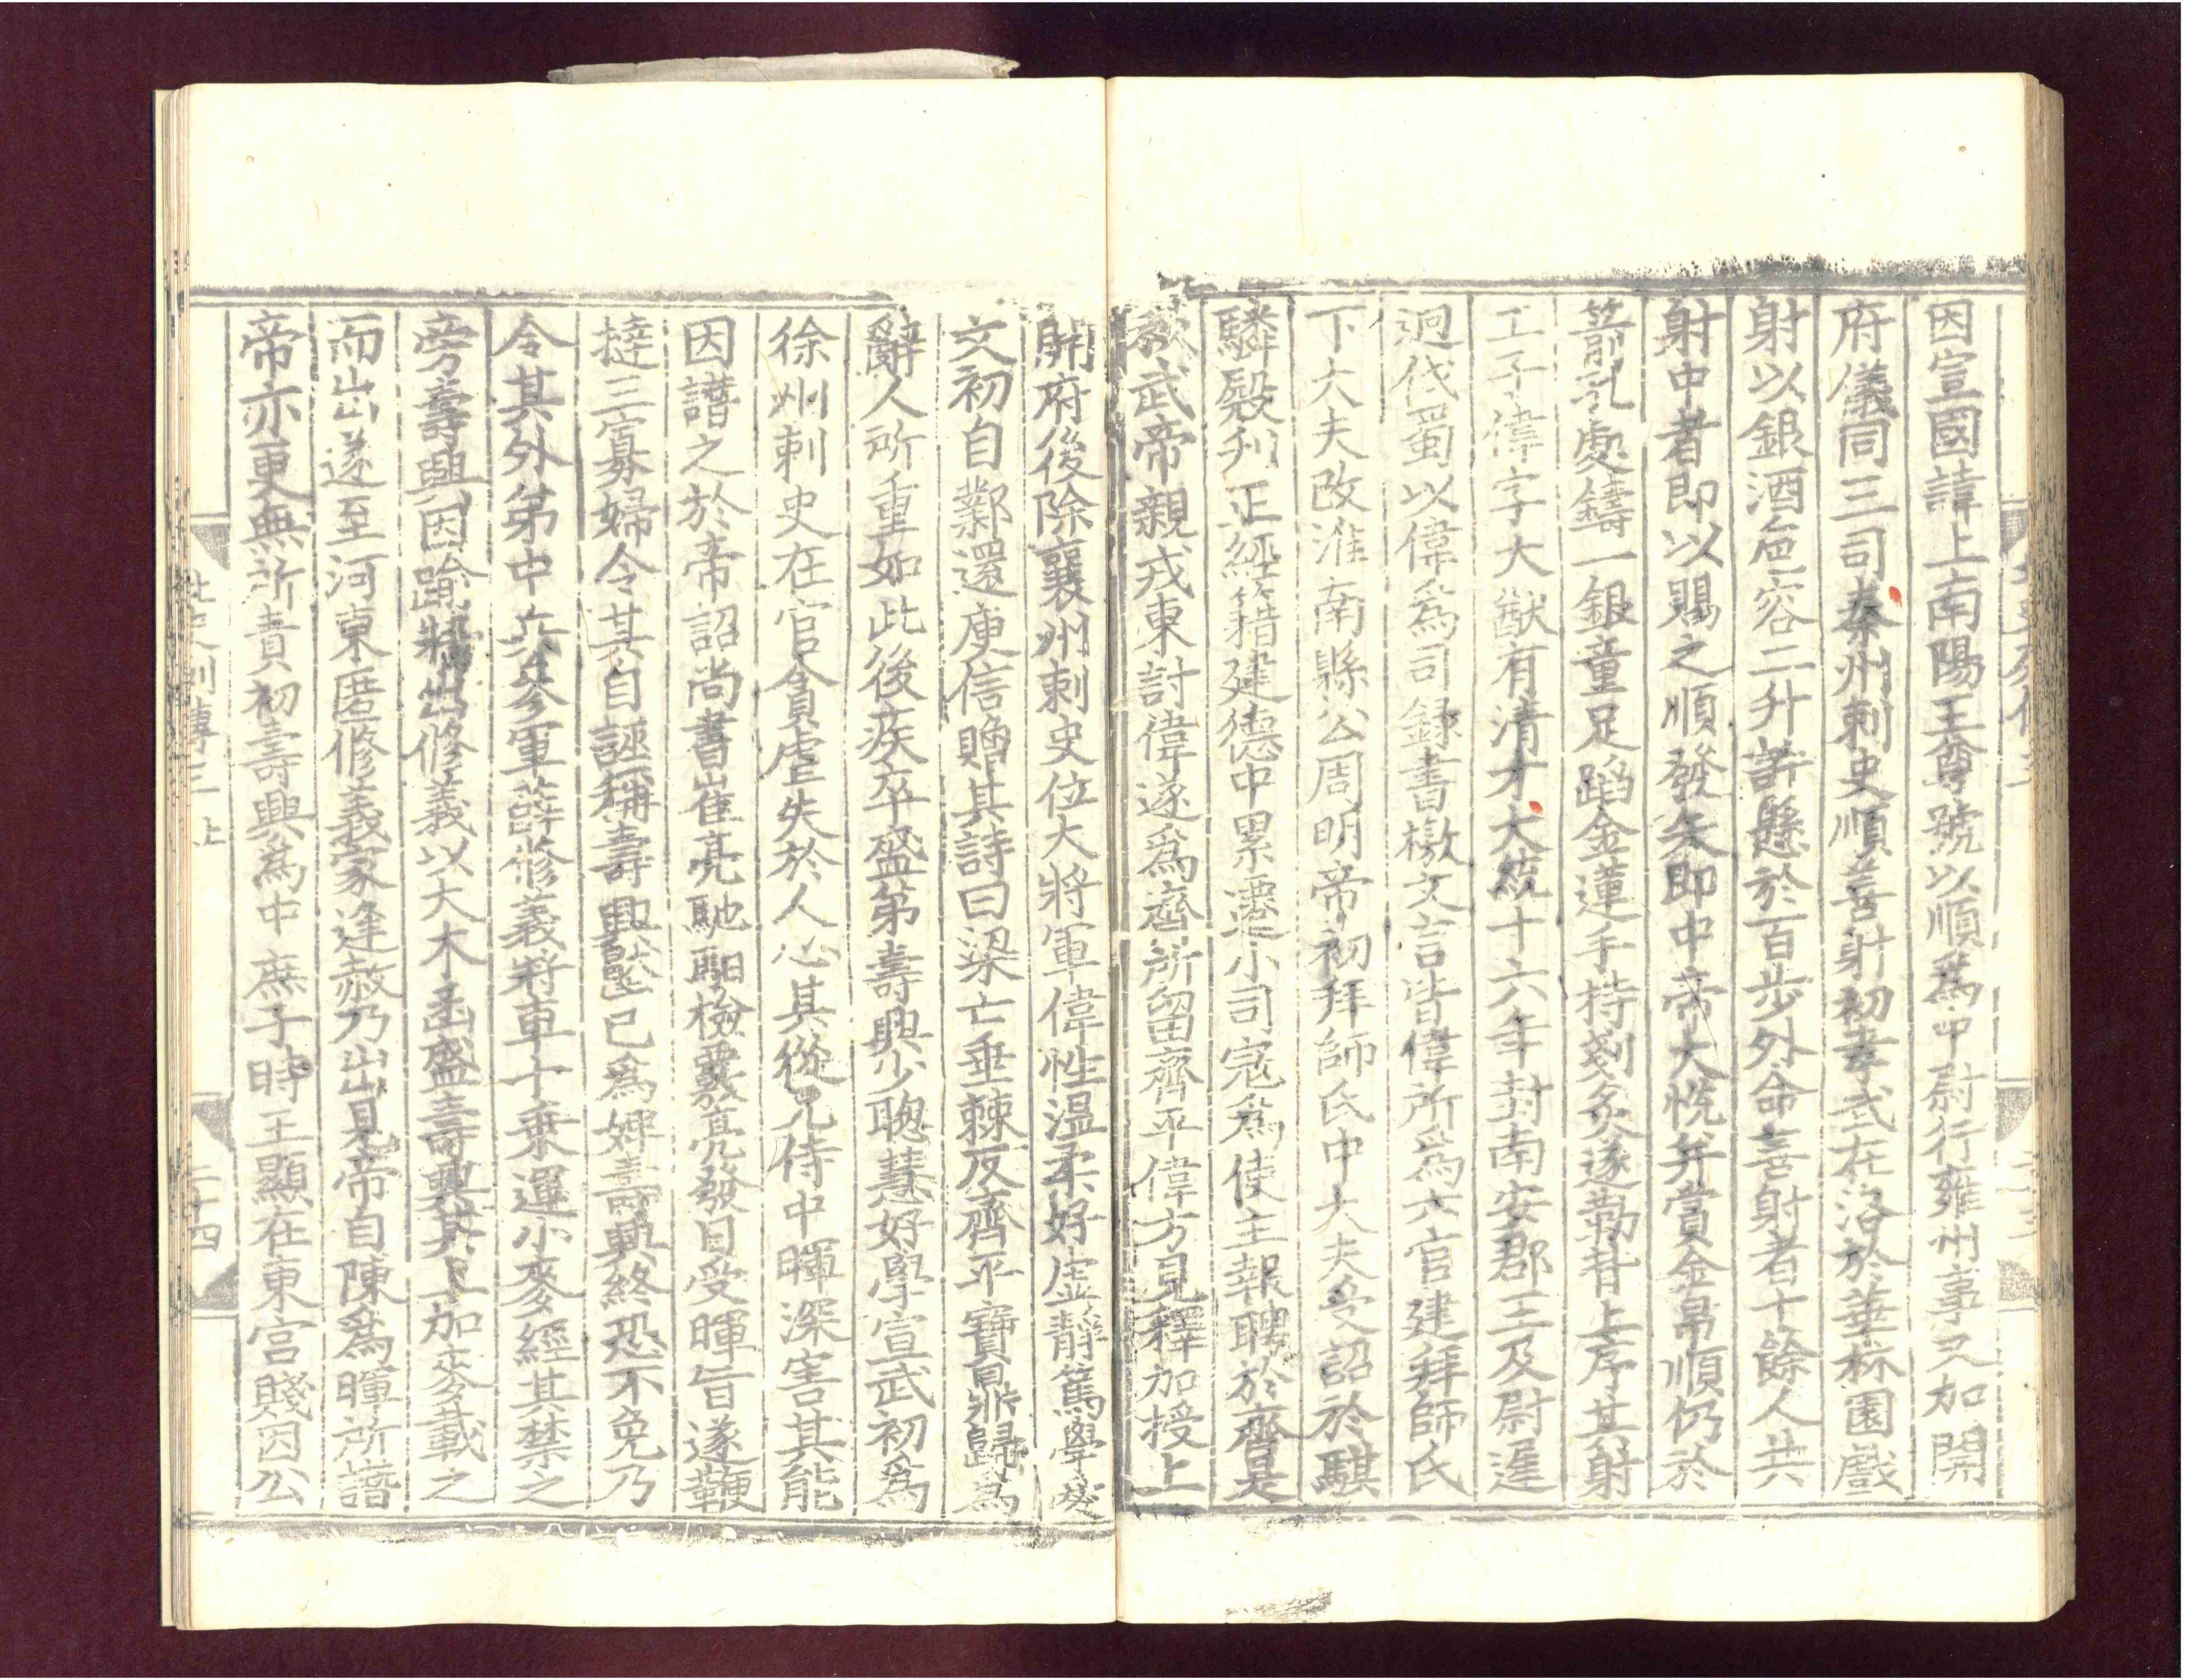 因宣國諱上南陽王尊號以順爲中尉行雍州事又加開
府儀同三司秦州刺史順善射初孝武在洛於華林園戲
射以銀酒卮容二升許懸於百步外命善射者十餘人共
射中者即以賜之順發矢即中帝大悅并賞金帛順仍於
箭孔處鑄一銀童足蹈金蓮手持剗炙遂勒背上序其射
工子偉字大猷有清才大統十六年封南安郡王及尉遲
迥伐蜀以偉爲司録書檄文言皆偉所爲六官建拜師氏
下大夫改淮南縣公周明帝初拜師氏中大夫受詔於騏
驎殿刋正經籍建德中累遷小司寇爲使主報聘於齊是
秋武帝親戎東討偉遂爲齊所留齊平偉方見釋加授上
開府後除襄州刺史位大將軍偉性温柔好虛靜篤學愛
文初自鄴還庾信贈其詩曰梁亡垂棘反齊平寶鼎歸爲
辭人所重如此後疾卒盛弟壽興少聰慧好學宣武初爲
徐州刺史在官貪虐失於人心其從兄侍中暉深害其能
因譖之於帝詔尚書崔亮馳駰檢覈亮發日受暉旨遂鞭
撻三寡婦令其自誣稱壽興壓己爲婢壽興終恐不免乃
令其外弟中兵參軍薛脩義將車十乗運小麥經其禁之
旁壽興因踰牆出修義以大木函盛壽興其上加麥載之
而出遂至河東匿修義家逢赦乃出見帝自陳爲暉所譖
帝亦更無所責初壽興爲中庶子時王顯在東宫賤因公
北史列傳三上
二十四